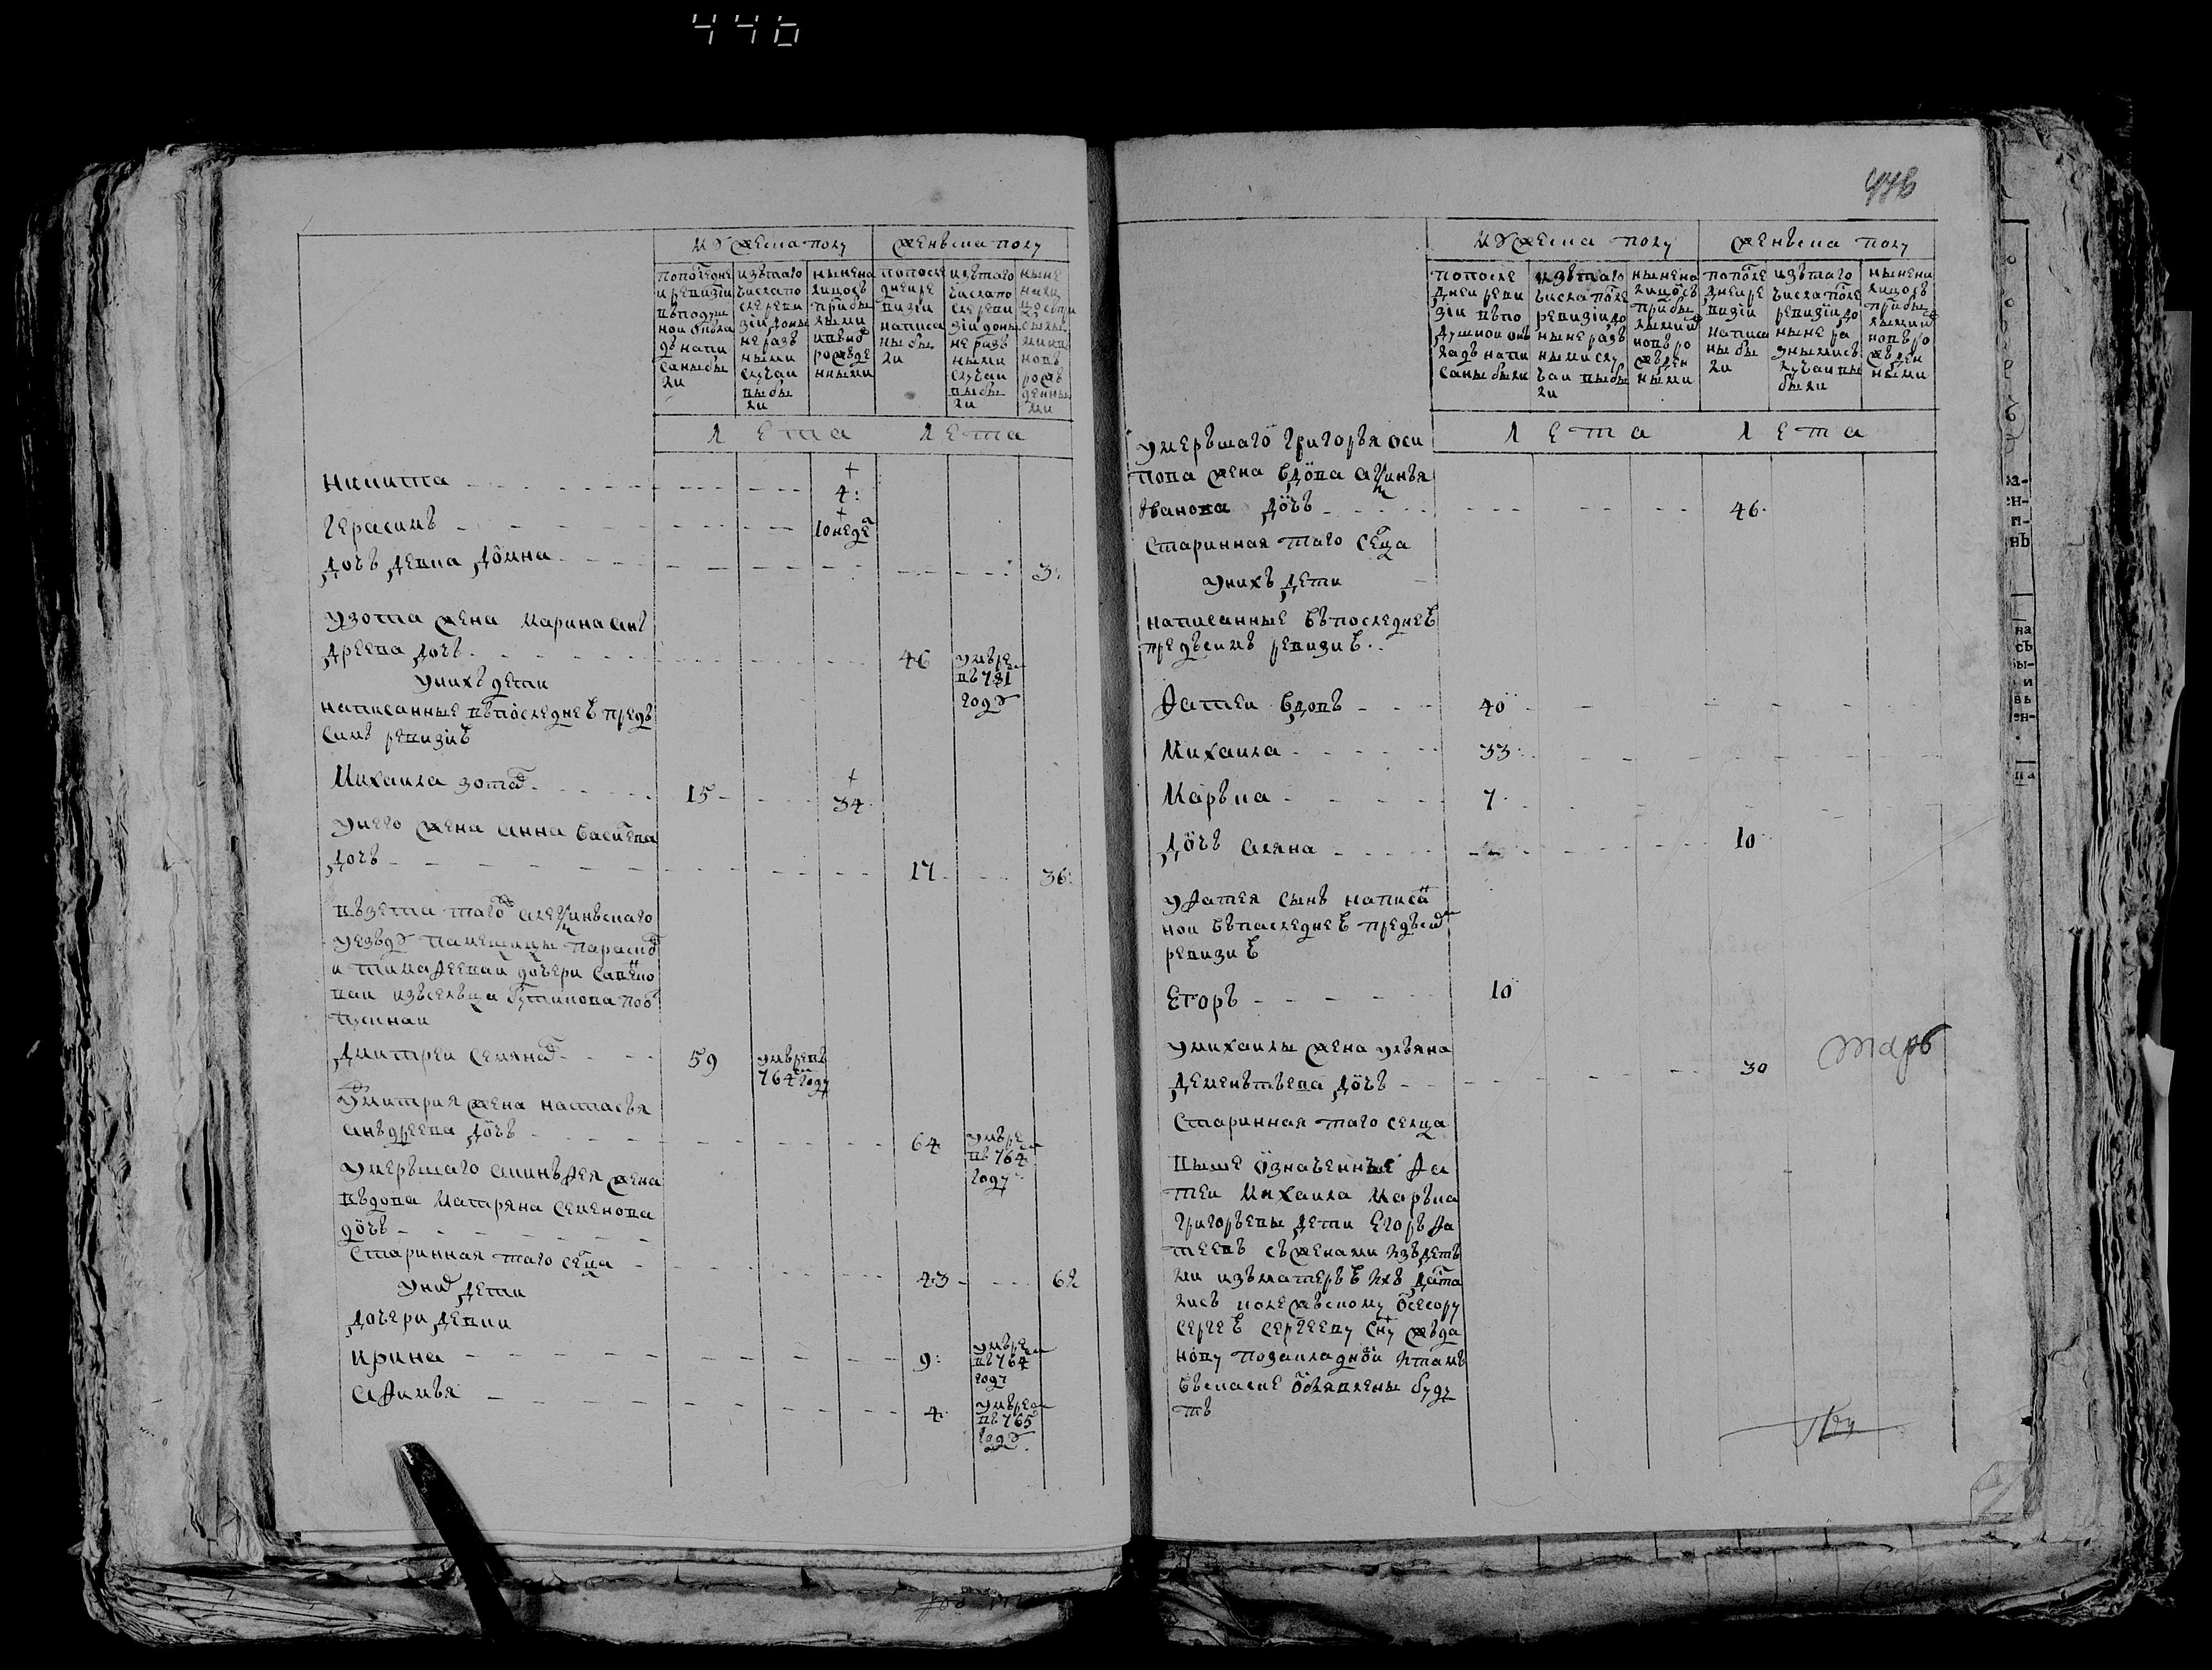 446
446
мужеска полу женъска полу
попоследнеи ревизии вподушнои окладъ написаны были
изътаго числа после ревизiи до ныне разными случаи выбыли
ныне на лицо съ прибылыми и вновь рожденными
попоследнеи ревизiи написаны были
изътаго числа после ревизiи доныне разными случаи выбыли
ныне налицо съ прибылыми и вновь рожденными
лета лета
никита 4:
герасимъ 10 неде
дочь девка домна 3:
узота жена марина анъ
дреева дочь 46 умре въ 781 году
унихъ дети
написанные въпоследнеѣ предъ
симъ ревизиѣ
михаила зотоа 15 34
унего жена анна василева
дочь 17 36:
възета тагож алексинъскаго
уезъду памещицы параскови
и тимафееваи дочери
ваи изъсельца
Дмитреи семяноа 59 умревъ 764 году
Дмитрия жена настасья
анъдреева дочь 64 умре въ 764 году
умеръшаго аникъфея жена
въдова матряна семенова
дочь
старинная таго селца 43 62
унихъ дети
дочери девки
ирина 9: умре въ 764 году
афимья 4 умре въ 765 году
мужеска полу женъска полу
попоследнеи ревизiи въподушнои окладъ написаны были
изътаго числа после ревизiи доныне разъными случаи выбыли
ныне налицосъ прибылыми и вновь рожъденными
попоследнеи ревизiи написаны были
изътаго числа после ревизiи доныне разнымисъ случаи выбыли
ныне налицосъ прибылыми и вновь рожъденными
лета лета
умеръшаго григоръя оси
пова жена вдова аксинья
Iванова дочь 46
старинная таго селца
унихъ дети
написанные въпоследнеѣ
предъсимъ ревизиѣ
фатеи вдовъ 40
михаила 33
маръка 7
дочь аляна 10
уфатея сынъ написан
нои въпаследнеѣ предъсим
ревизиѣ
егоръ 10
умихаилы жена ульяна
деменътьева дочь 30
старинная таго селца
выше означенные фа
теи михаила маръка
григорьевы дети егоръ фа
теевъ съженами изъдеть
ми изъматеръѣ ихъ дата
лисъ колежъскому осесору
сергеѣ сергееву сну жъда
нову позакладнои итамъ
въсказке объявлены буду
тъ